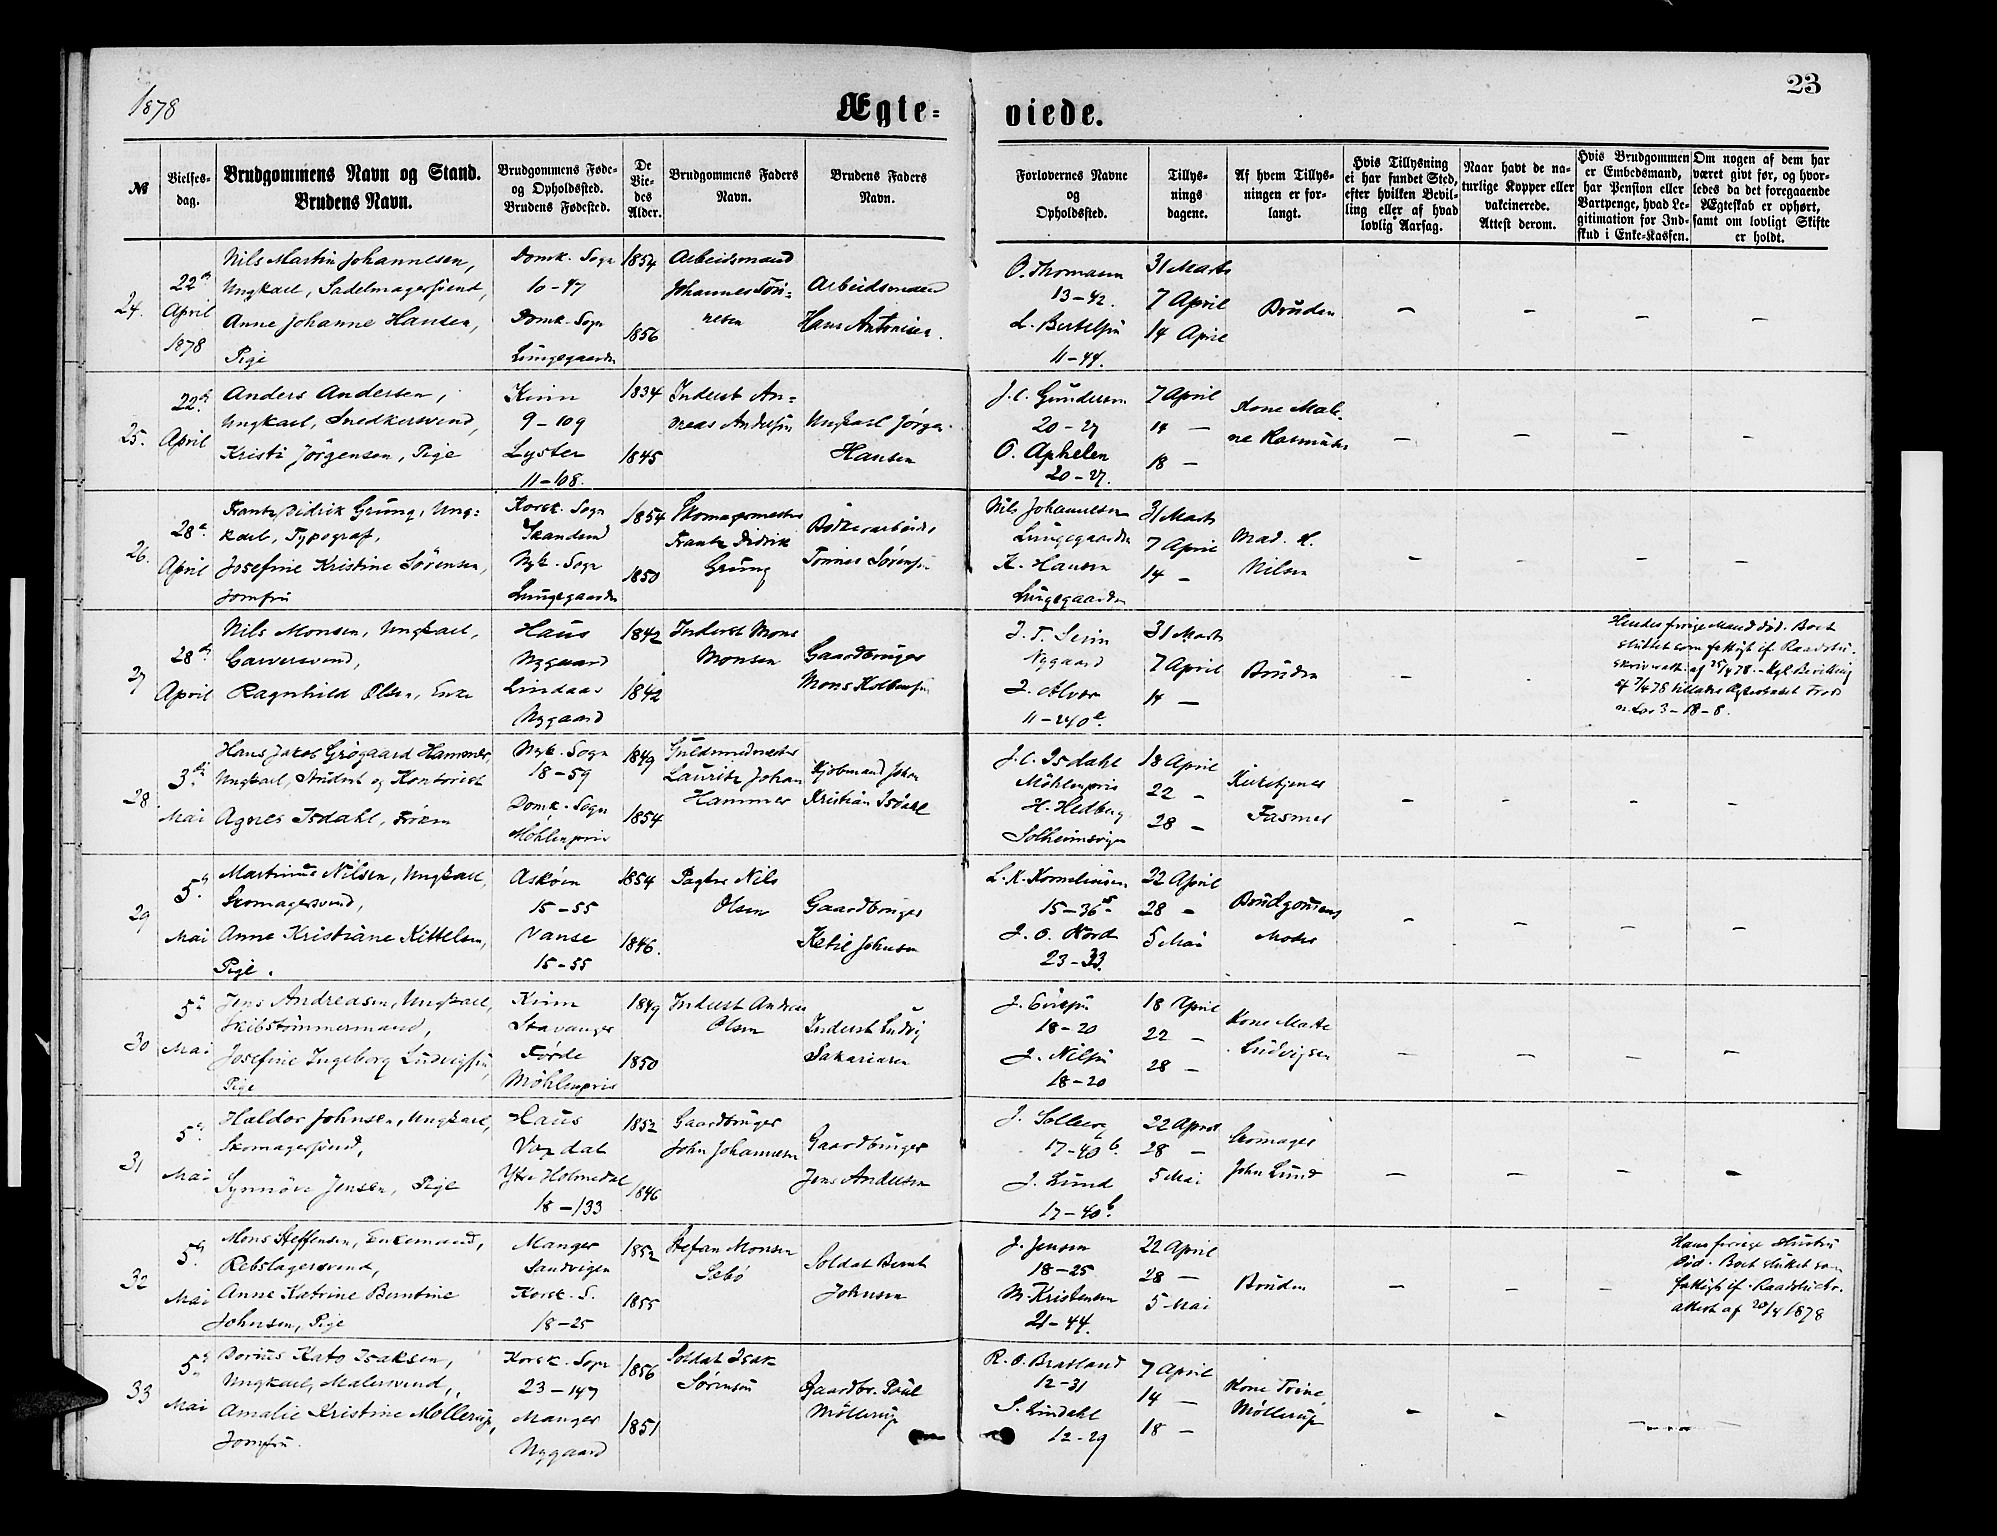 1878
Ægte-
viede.
23
№
Vielses-
dag.
Brudgommens Navn og Stand.
Brudens Navn.
Brudgommens Føde-
og Opholdssted.
Brudens Fødested.
De
Vie-
des
Alder.
Brudgommens Faders
Navn.
Brudens Faders
Navn.
Forlovernes Navne
og
Opholdssted.
Tillys-
nings
dagene.
Af hvem Tillys-
ningen er for-
langt.
Hvis Tillysning
ei har fundet Sted,
efter hvilken Bevil-
ling eller af hvad
lovlig Aarsag.
Naar havt de na-
turlige Kopper eller
vakcinerede.
Attest derom.
Hvis Brudgommen
er Embedsmand,
har Pension eller
Vartpenge, hvad Le-
gitimation for Ind-
skud i Enke-Kassen.
Om nogen af dem har
været givt før, og hvor-
ledes da det foregaaende
Ægteskab er ophørt,
samt om lovligt Skifte
er holdt.
24.
22de
April
1878
Nils Martin Johannesen,
Ungkarl, Sadelmagersvend,
Anne Johanne Hansen,
Pige
Domk. Sogn
10-97
Domk. Sogn
Lungegaarden
1854
1856
Arbeidsmand
Johannes Tøn-
nesen
Arbeidsmand
Hans Antonisen.
O. Thomasen
13-42.
L. Bertelsen
11-44.
31 Marts
7 April
14 April
Bruden
- - - -
25.
22de
April
Anders Andersen,
Ungkarl, Snedkersvend,
Kristi Jørgensen, Pige
Kinn
9-109
Lyster
11-108.
1834
1845
Inderst An-
dreas Andersen
Ungkarl Jørgen
Hansen
J. C. Gundersen
20-27
O. Aphelen
20-27.
7 April
14 -
18 -
Kone Male-
ne Rasmusen
- - - -
26.
28de
April
Frantz Didrik Grung, Ung-
karl, Typograf,
Josefine Kristine Sørensen,
Jomfru
Korsk. Sogn
Standend
Nyk. Sogn
Lungegaarden
1854
1850
Skomagermester
Frantz Didrik
Grung
Bødkerarbeider
Tønnes Sørensen
Nils Johannesen
Lungegaarden
K. Hansen
Lungegaarden
31 Marts
7 April
14 -
Mad. K.
Nilsen
- - - -
27
28de
April
Nils Monsen, Ungkarl,
Garversvend,
Ragnhild Olsen, Enke
Haus
Nygaard
Lindaas
Nygaard
1842
1842
Inderst Mons
Monsen
Gaardbruger
Mons Kolbensen
J. T. Sevin
Nygaard
J. Alver
11-240e.
31 Marts
7 April
14 -
Bruden
- - -
Hendes forrige Mand død. Boet
sluttet som fattigt if. Raadstu-
skriveratt. af 25/4 78. - Kgl. Bevilling
af 7/4 78 tillader Ægteskabet
3-18-8.
28
3die
Mai
Hans Jakob Grøgaard Hammer,
Ungkarl, Student og Kontorist
Agnes Isdahl, Frøken
Nyk. Sogn
18-59
Domk. Sogn
Møhlenpris
1849
1854
Guldsmedmester
Lauritz Johan
Hammer
Kjøbmand Johan
Kristian Isdahl
J. C. Isdahl
Møhlenpris
H. Hedberg
Solheimsvigen
18 April
22 -
28 -
Kirketjener
Fasmer
- - - -
29
5te
Mai
Martinus Nilsen, Ungkarl,
Skomagersvend,
Anne Kristiane Kittelsen,
Pige.
Askøen
15-55
Vanse
15-55
1854
1846.
Pagter Nils
Olsen
Gaardbruger
Ketil Johnsen
L. K. Kornelisen
15-36
J. O. Nord
23-33.
22 April
28 -
5 Mai
Brudgommens
Moder
- - - -
30
5te
Mai
Jens Andreasen, Ungkarl,
Skibstømmermand,
Josefine Ingeborg Ludvigsen,
Pige
Kinn
Stavanger
Førde
Møhlenpris
1849
1850
Inderst Andreas
Olsen
Inderst Ludvig
Sakariasen
18-20
J. Nilsen
18-20
18 April
22 -
28 -
Kone Marte
Ludvigsen
- - - -
31
5te
Mai
Haldor Johnsen, Ungkarl,
Skomagersvend,
Synnøve Jensen, Pige
Haus
Vaxdal
Ytre Holmedal
18-133
1852
1846
Gaardbruger
John Johannesen
Gaardbruger
Jens Andersen
J. Solberg
17-40b.
J. Lund
17-40b.
22 April
28 -
5 Mai
Skomager
John Lund
- - - -
32
5te
Mai
Mons Steffensen, Enkemand,
Rebslagersvend,
Anne Katrine Berntine
Johnsen, Pige
Manger
Sandvigen
Korsk. S.
18-25
1852
1855
Stefan Monsen
Sebø
Soldat Bernt
Johnsen
J. Jensen
18-25
M. Kristensen
21-44.
22 April
28 -
5 Mai
Bruden
- - -
Hans forrige Hustru
død. Boet sluttet som
fattigt if. Raadstuskr.
attest af 20/4 1878
33
5te
Mai
Dorius Kato Isaksen,
Ungkarl, Malersvend,
Amalie Kristine Møllerup,
Jomfru.
Korsk. Sogn
23-147
Manger
Nygaard
1856
1851
Soldat Isak
Sørensen
Gaardbr. Poul
Møllerup
R. O. Bratland
12-31
S. Lindahl
12-29
7 April
14 -
18 -
Kone Trine
Møllerup
- - - -